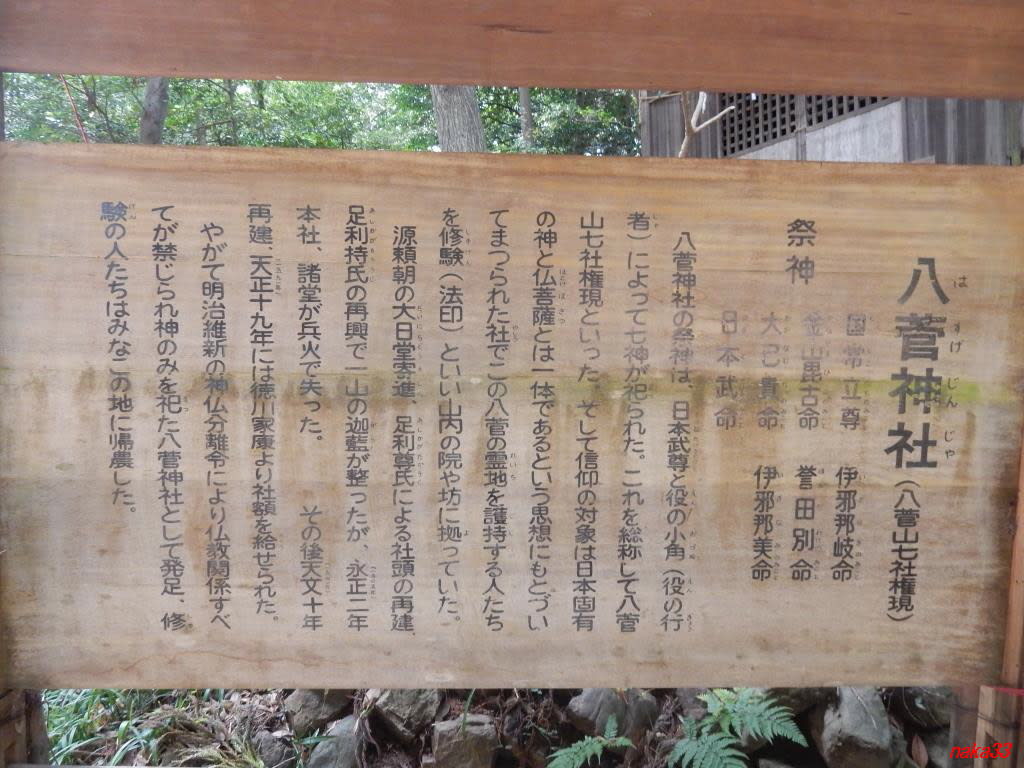 八菅神社（八菅山七社権現）
祭神
国常立尊　伊邪那岐命
金山毘古命　誉田別命
大己貴命　伊邪那美命
日本武命
八菅神社の祭神は、日本武尊と役の小角（役の行
者）によって七神が祀られた。これを総称して八菅
山七社権現といった。そして信仰の対象は日本固有
の神と仏菩薩とは一体であるという思想にもとづい
てまつられた社でこの八菅の霊地を護持する人たち
を修験（法印）といい山内の院や坊に拠っていた。
源頼朝の大日堂寄進、足利尊氏による社頭の再建、
足利持氏の再興で一山の迦藍が整ったが、永正二年
本社、諸堂が兵火で失った。　その後天文十年
再建、天正十九年には徳川家康より社額を給せられた。
やがて明治維新の神仏分離令により仏教関係すべ
てが禁じられ神のみを祀た八菅神社として発足、修
験の人たちはみなこの地に帰農した。
naka33